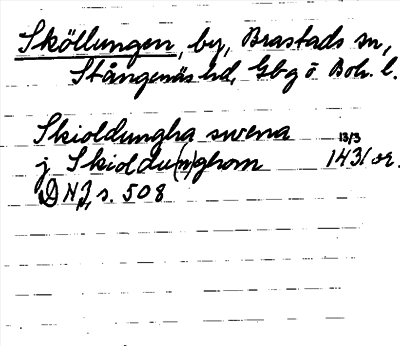 Sköllungen, by, Brastads sn,
Stångenäs hd, Gbg o Boh. l.
Skioldungha swena 13/3
j Skioldu(n)ghom 1431 or.
DN I, s. 508